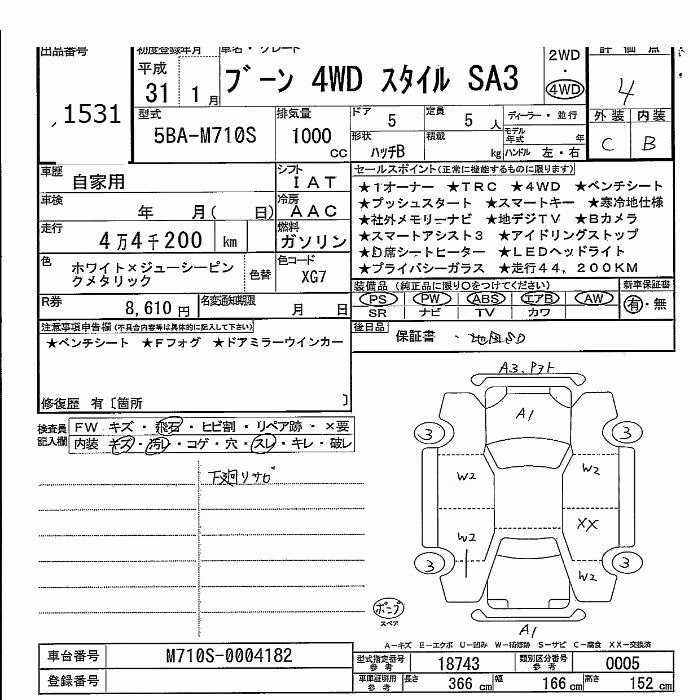 出品番号
1531
初度登録年月
平成
31 1 月
車名・グレード
ブーン 4WD スタイル SA3
2WD
・
4WD
評価点
4
外装 内装
C B
型式
5BA-M710S
排気量
1000
cc
ドア
5
定員
5 人
形状
ハッチB
積載
kg
ディーラー・並行
モデル年式 年
ハンドル 左・右
車歴
自家用
シフト
IAT
車検
年 月( 日)
冷房
AAC
走行
4万4千200 km
燃料
ガソリン
色
ホワイト×ジューシーピンクメタリック
色替
色コード
XG7
R券
8,610 円
名変通知期限
月 日
セールスポイント(正常に機能するものに限ります)
★1オーナー ★TRC ★4WD ★ベンチシート
★プッシュスタート ★スマートキー ★寒冷地仕様
★社外メモリーナビ ★地デジTV ★Bカメラ
★スマートアシスト3 ★アイドリングストップ
★D席シートヒーター ★LEDヘッドライト
★プライバシーガラス ★走行44,200KM
装備品 (純正品に限り○をつけてください)
PS PW ABS エアB AW
SR ナビ TV カワ
新車保証書
有・無
後日品
保証書
注意事項申告欄(不具合内容等は具体的に記入して下さい)
★ベンチシート ★Fフォグ ★ドアミラーウインカー
修復歴 有〔箇所 〕
検査員記入欄
FW キズ・飛石・ヒビ割・リペア跡・×要
内装 キズ・汚レ・コゲ・穴・スレ・キレ・破レ
下廻りサビ
A3、Pアト
A1
3
3
W2
W2
W2
XX
3
3
W2
A1
ポンプ
スペア
A-キズ E-エクボ U-凹み W-補修跡 S-サビ C-腐食 XX-交換済
車台番号
M710S-0004182
登録番号
型式指定番号
参考
18743
類別区分番号
参考
0005
車庫証明用
参考
長さ 366 cm 幅 166 cm 高さ 152 cm